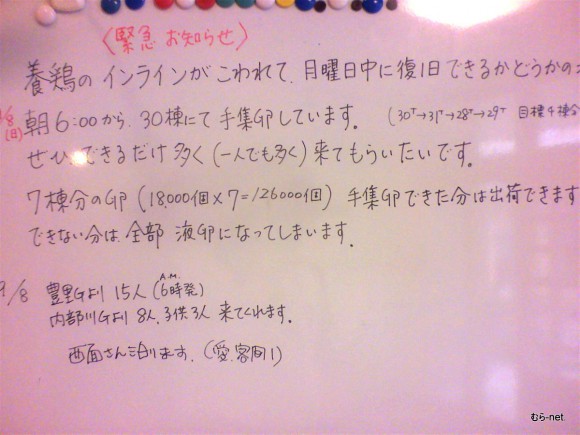 〈緊急 お知らせ〉
養鶏の インラインが こわれて、月曜日中に復旧できるかどうかの
/8(日) 朝6:00から、30棟にて 手集GPしています。 (30T→31T→28T→29T 目標4棟分
ぜひ、できるだけ 多く (一人でも多く) 来てもらいたいです。
7棟分のGP (18000個×7=126000個) 手集GPできた分は出荷できます
できない分は、全部 液GPになってしまいます。
9/8 豊里Gより 15人 (A.M.6時発)
内部川Gより 8人、子供3人 来てくれます。
西面さん泊ります. (愛.客間1)
むら-net